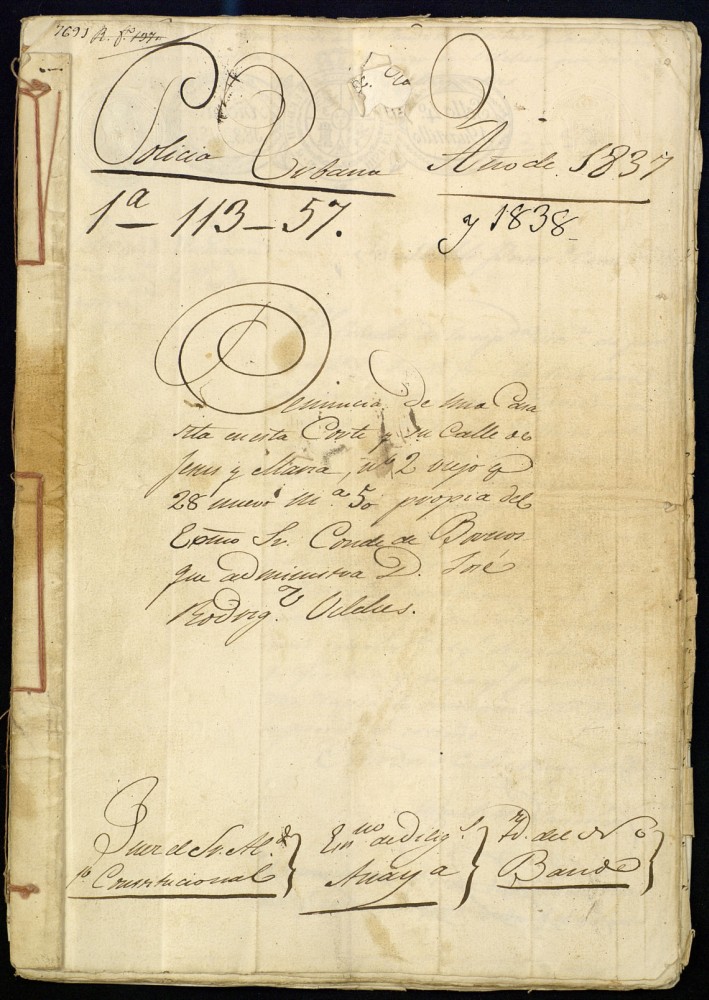 7691 R. fº 197
Policia Urbana Año de 1837
1ª - 113 - 57. y 1838
Denuncia de una Casa
sita en esta Corte y su Calle de
Jesus y Maria, nº 2 viejo y
28 nuevo Mª 50 propia del
Exmo Sr. Conde de
que administra D. José
Rodrigz
Juez el Sr. Al.e
1º Constitucional
Esnno de Dilig.s
Anaya
del Nº
Bande